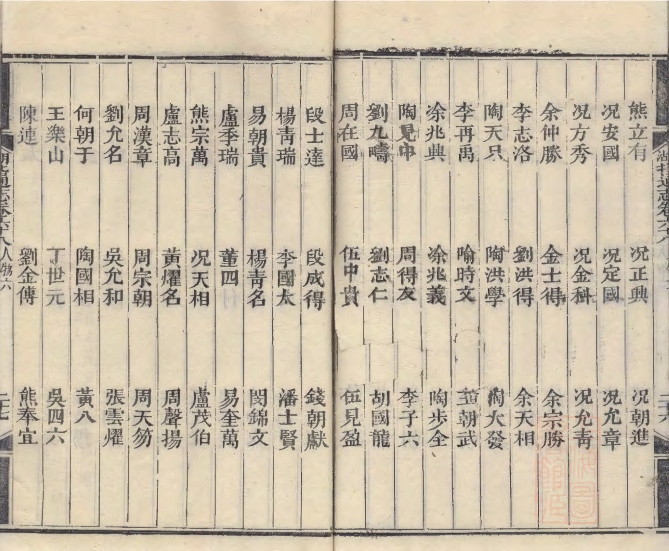 熊立有 况正興 况朝進
况安國 况定國 况允章
况方秀 况金科 况允青
余仲勝 金士得 余宗勝
李志洛 劉洪得 余天相
陶天只 陶洪學 陶大發
李再禹 喻時文 朝武
涂兆興 涂兆義 陶步全
陶見中 周得友 李子六
劉九疇 劉志仁 胡國龍
周在國 伍中貴 伍見盈
段士達 段成得 錢朝獻
楊青瑞 李國太 潘士賢
易朝貴 楊青名 閔錦文
盧季瑞 董四 易奎萬
熊宗萬 况天相 盧茂伯
盧志高 黃燿名 周聲揚
周漢章 周宗朝 周天笏
劉允名 吳允和 張雲燿
何朝于 陶國相 黃八
王樂山 丁世元 吳四六
陳連 劉金傳 熊奉宜
人物六
二十七